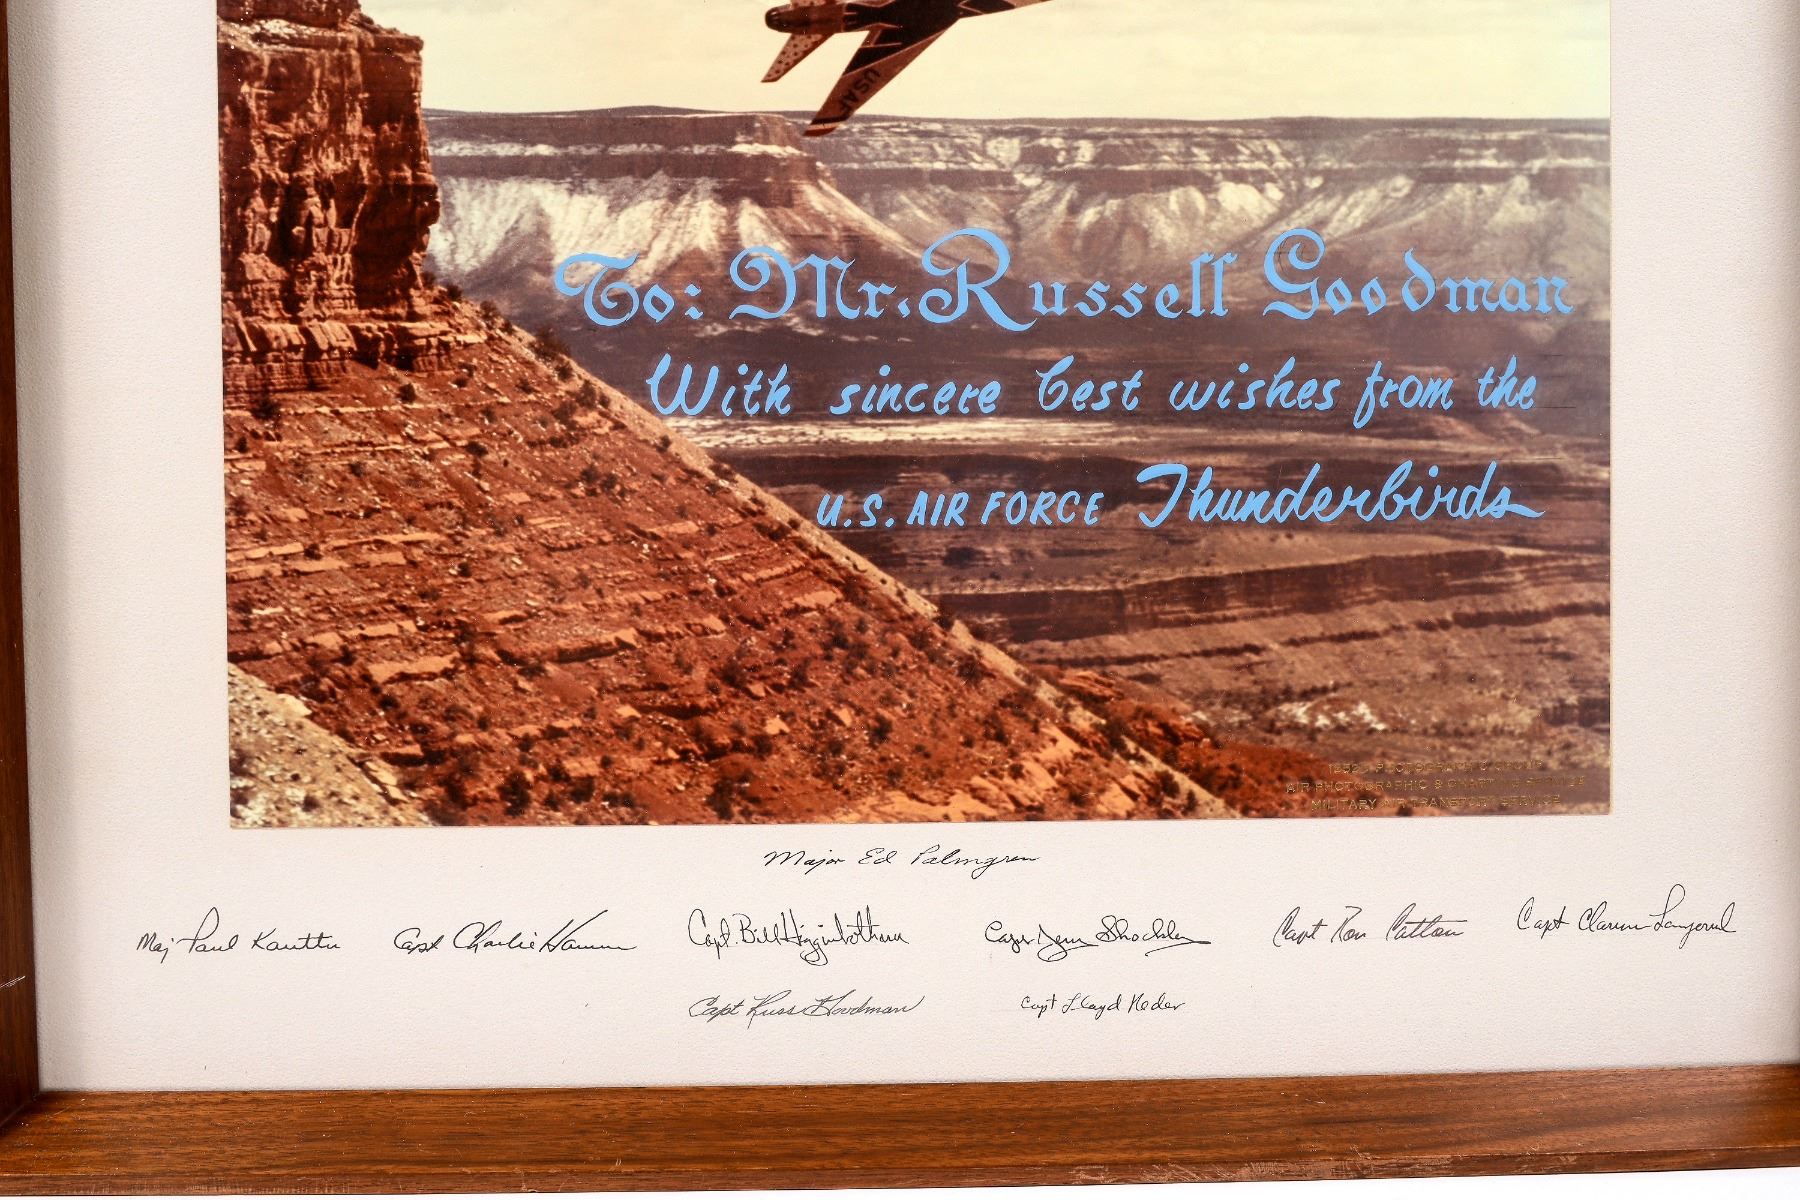 USAF
To: Mr. Russell Goodman
With sincere best wishes from the
U.S. AIR FORCE Thunderbirds
PHOTOGRAPHIC GROUP
AIR PHOTOGRAPHIC & CHARTING SERVICE
MILITARY AIR TRANSPORT SERVICE
Major Ed Palmgren
Maj Paul Kauttu Capt Charlie Hamm Capt. Bill Higginbotham Capt Jerry Shockley Capt Ron Catton Capt Clarence Langerud
Capt Russ Goodman Capt Lloyd Reder